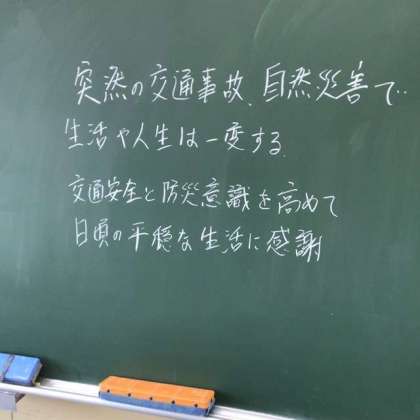 突然の交通事故、自然災害で‥
生活や人生は一変する
交通安全と防災意識を高めて
日頃の平穏な生活に感謝